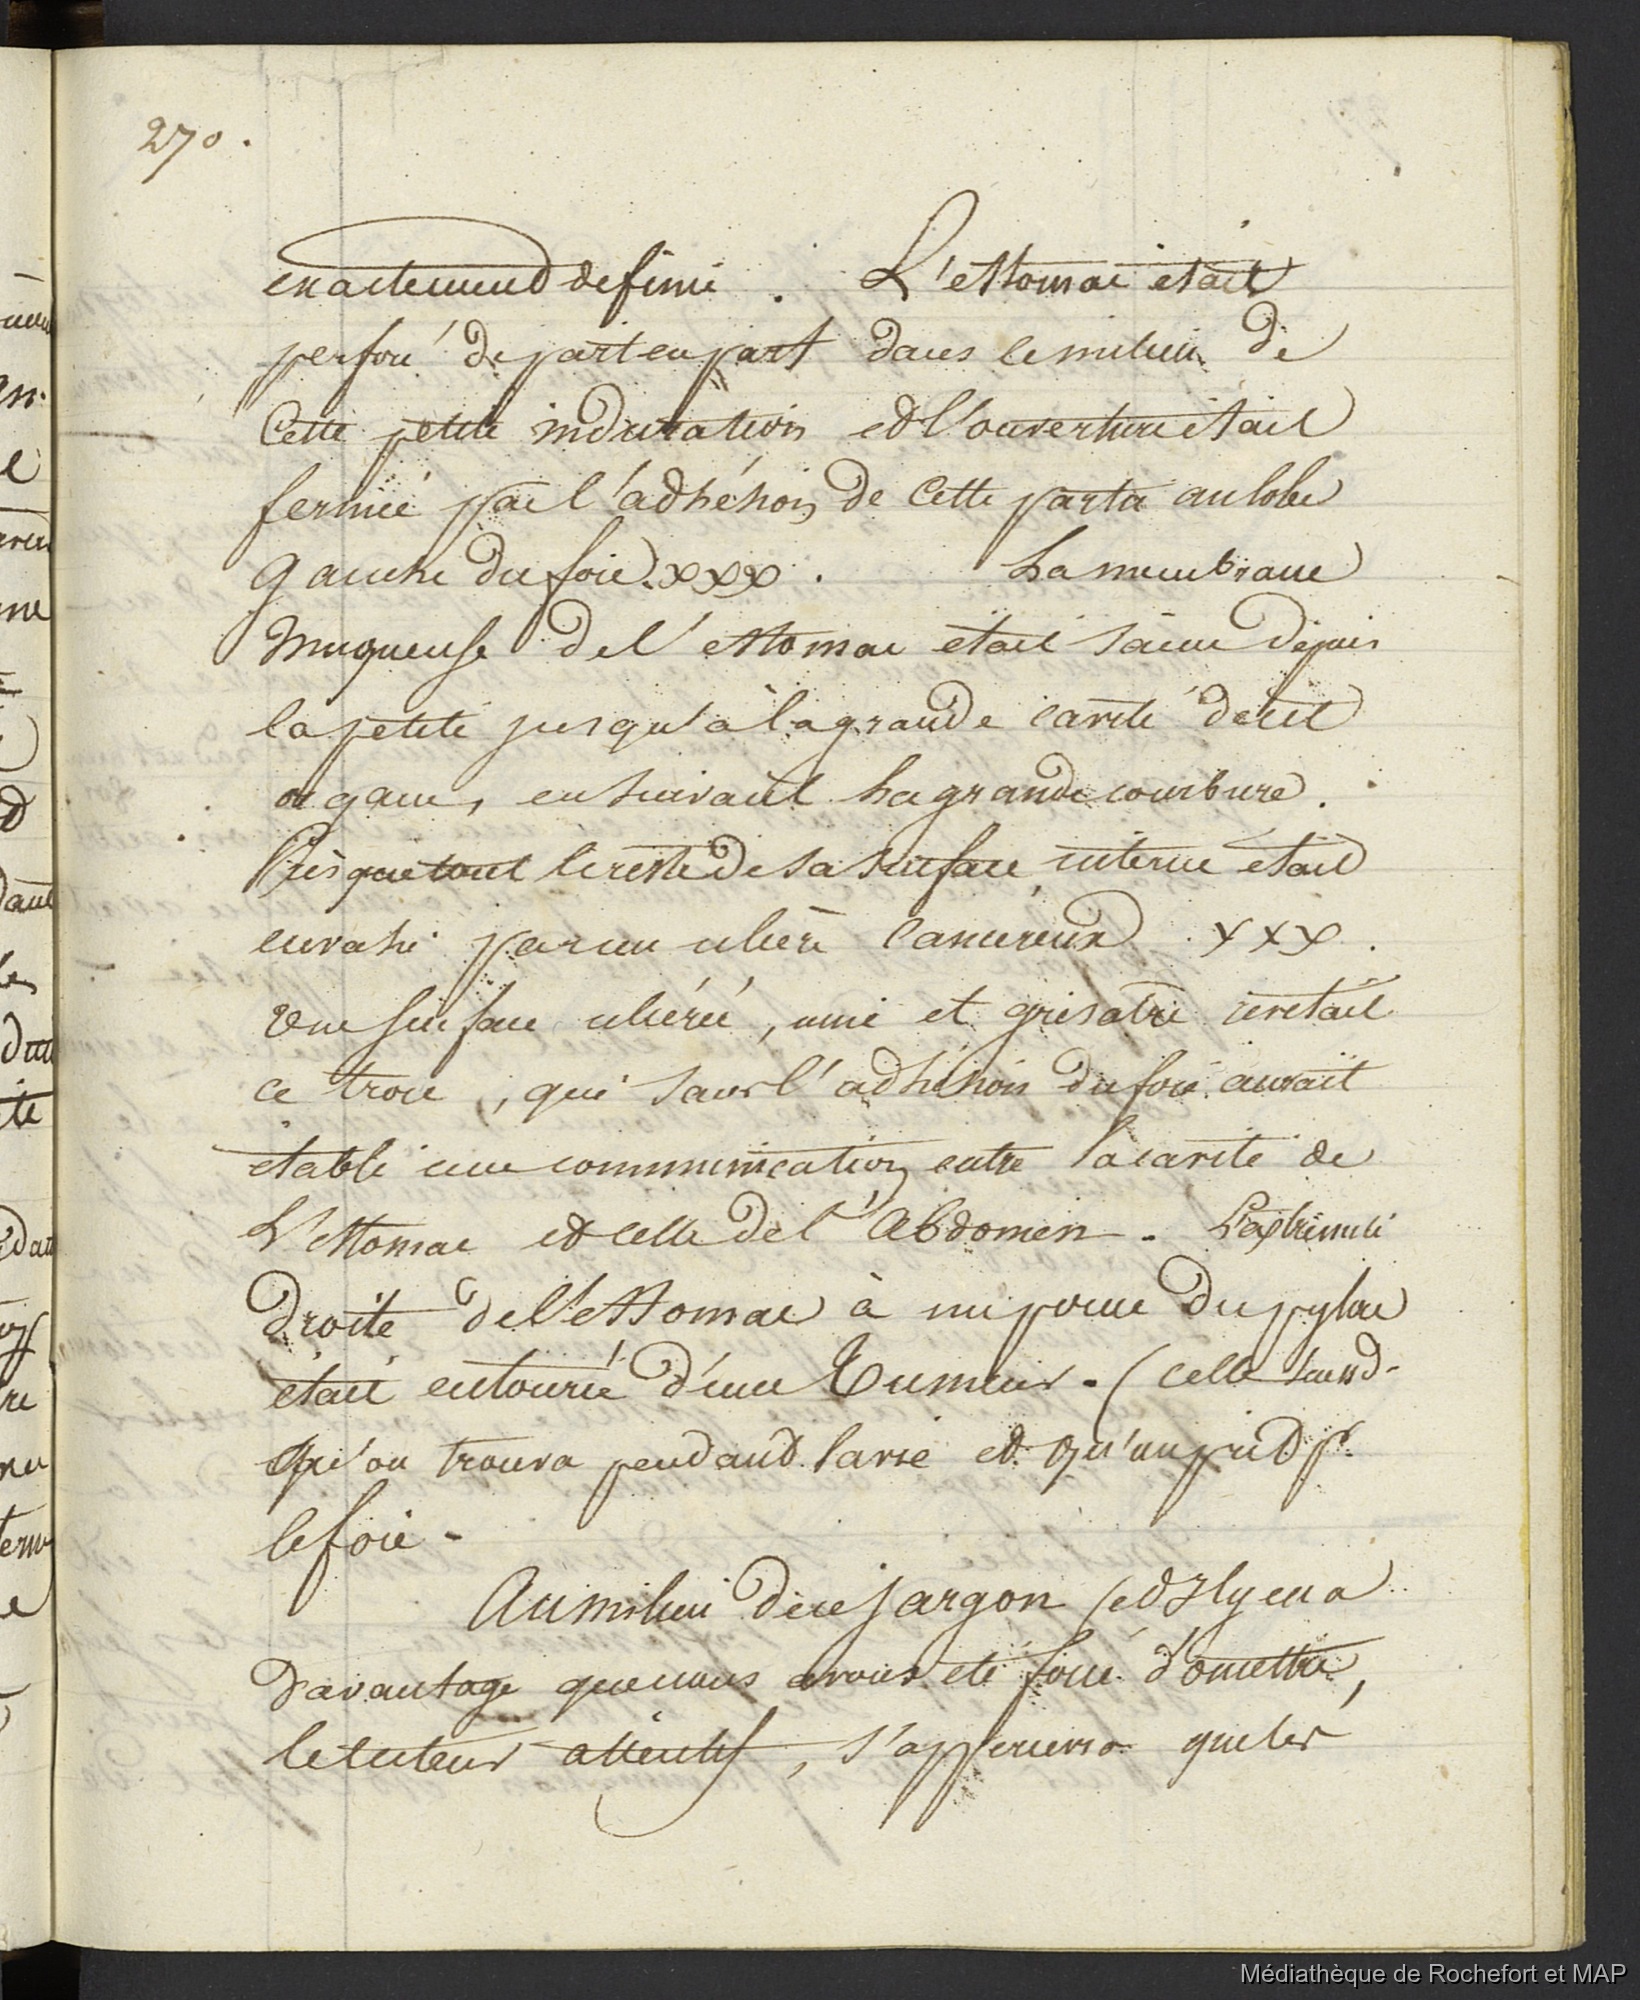 270.
exactement defini. L'estomac etait
perforé de part en part dans le milieu de
Cette petite induration et l'ouverture était
fermée par l'adhésion de Cette partie au lobe
gauche du foie. xxx. La membrane
Muqueuse de l'estomac etait saine depuis
la petite jusqu'à la grande cavité de cet
organe, en suivant la grande courbure.
Presque tout le reste de sa surface interne etait
envahi par un ulcère cancereux xxx.
Une surface ulcérée, unie et grisatre revetait
ce trou, qui sans l'adhésion du foie aurait
etabli une communication entre la cavité de
L'estomac et celle de l'Abdomen. L'extrimité
droite de l'estomac à un pouce du pylore
était entourée d'une Tumeur. (celle
qu'on trouva pendant la vie et qu'on prit pr
le foie.
Au milieu de ce jargon (et il y en a
Davantage que nous avons eté forcé d'omettre,
le lecteur attentif, s'appercevra que les
Médiathèque de Rochefort et MAP